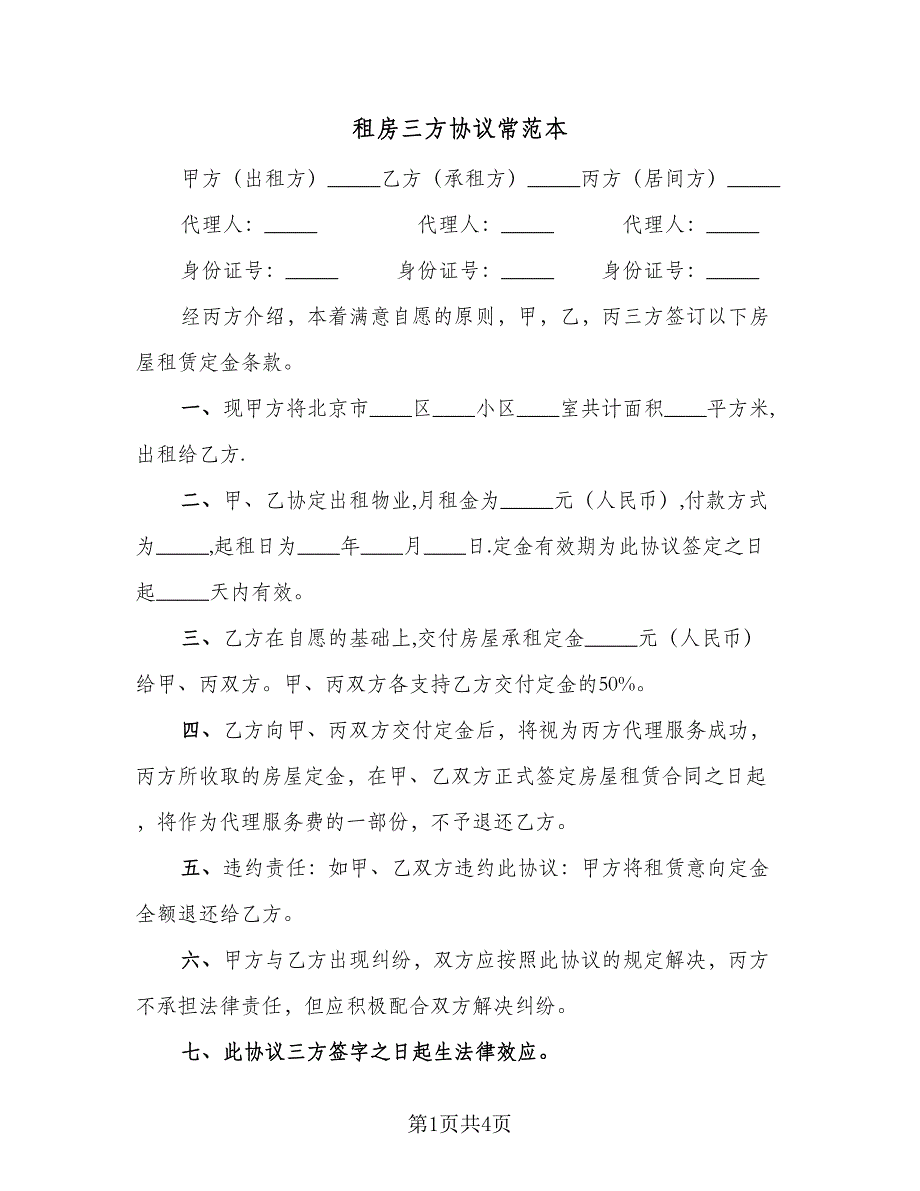 租房三方协议常范本
甲方（出租方）_____乙方（承租方）_____丙方（居间方）_____
代理人：_____ 代理人：_____ 代理人：_____
身份证号：_____ 身份证号：_____ 身份证号：_____
经丙方介绍，本着满意自愿的原则，甲，乙，丙三方签订以下房
屋租赁定金条款。
一、现甲方将北京市____区____小区____室共计面积____平方米,
出租给乙方.
二、甲、乙协定出租物业,月租金为_____元（人民币）,付款方式
为_____,起租日为____年____月____日.定金有效期为此协议签定之日
起_____天内有效。
三、乙方在自愿的基础上,交付房屋承租定金_____元（人民币）
给甲、丙双方。甲、丙双方各支持乙方交付定金的50%。
四、乙方向甲、丙双方交付定金后，将视为丙方代理服务成功，
丙方所收取的房屋定金，在甲、乙双方正式签定房屋租赁合同之日起
，将作为代理服务费的一部份，不予退还乙方。
五、违约责任：如甲、乙双方违约此协议：甲方将租赁意向定金
全额退还给乙方。
六、甲方与乙方出现纠纷，双方应按照此协议的规定解决，丙方
不承担法律责任，但应积极配合双方解决纠纷。
七、此协议三方签字之日起生法律效应。
第1页共4页